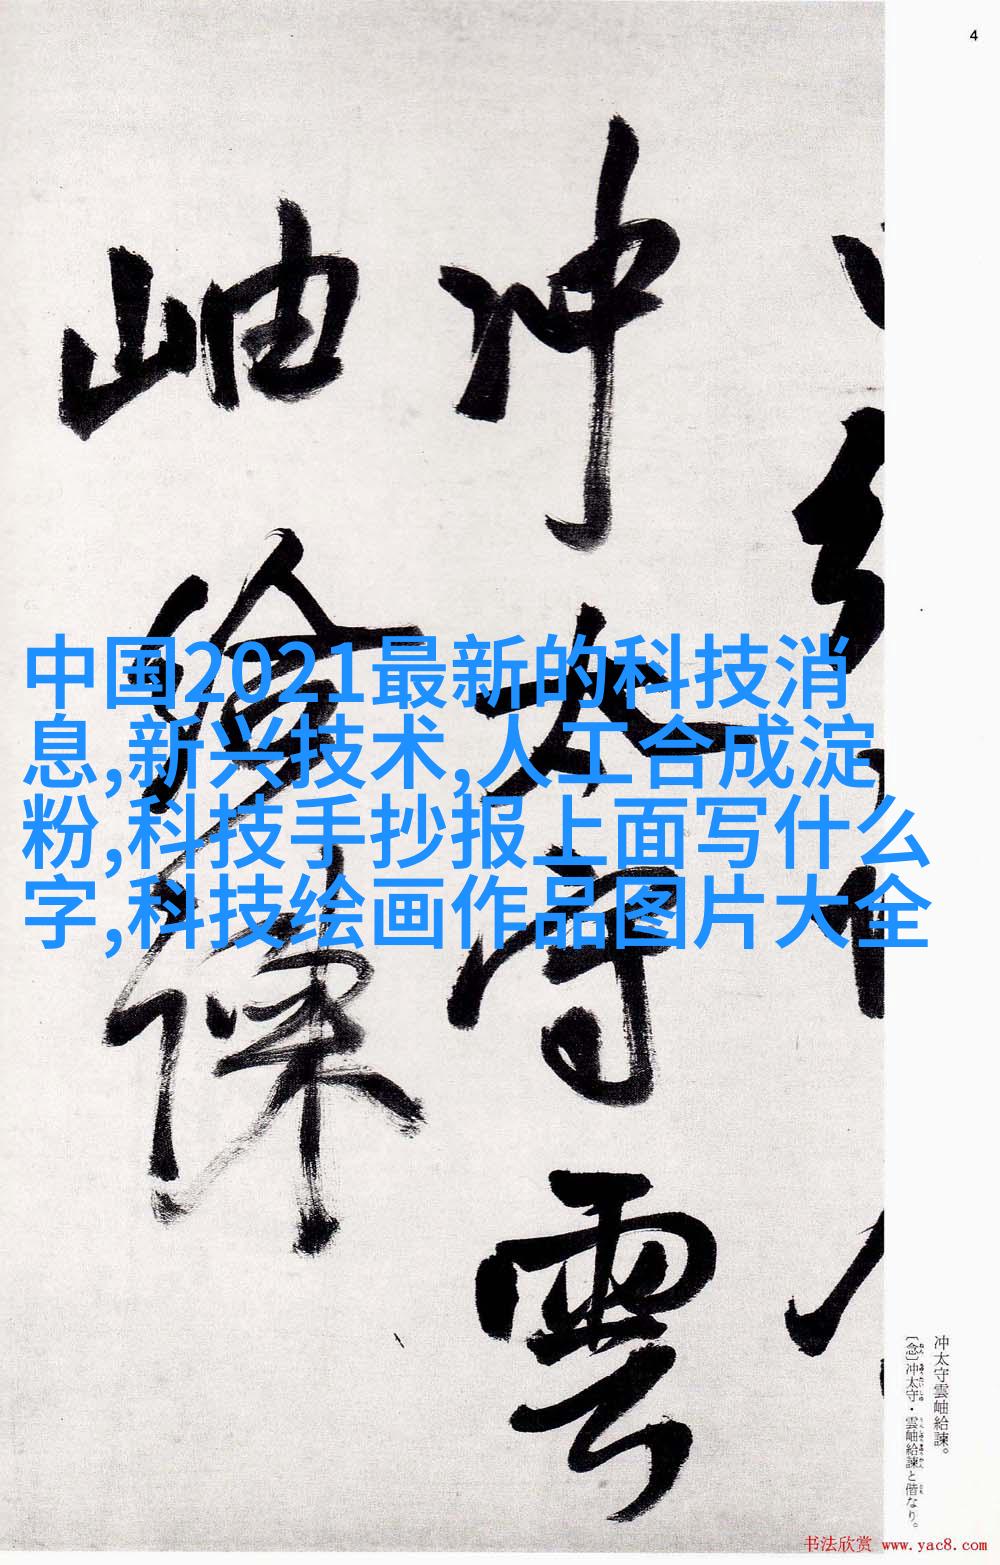 4
冲太守雲
岫給諫
中国2021最新的科技消
息,新兴技术,人工合成淀
粉,科技手抄报上面写什么
字,科技绘画作品图片大全
冲太守雲岫給諫。
〔念〕冲太守・雲岫給諫と偕なり。
书法欣赏 www.yac8.com